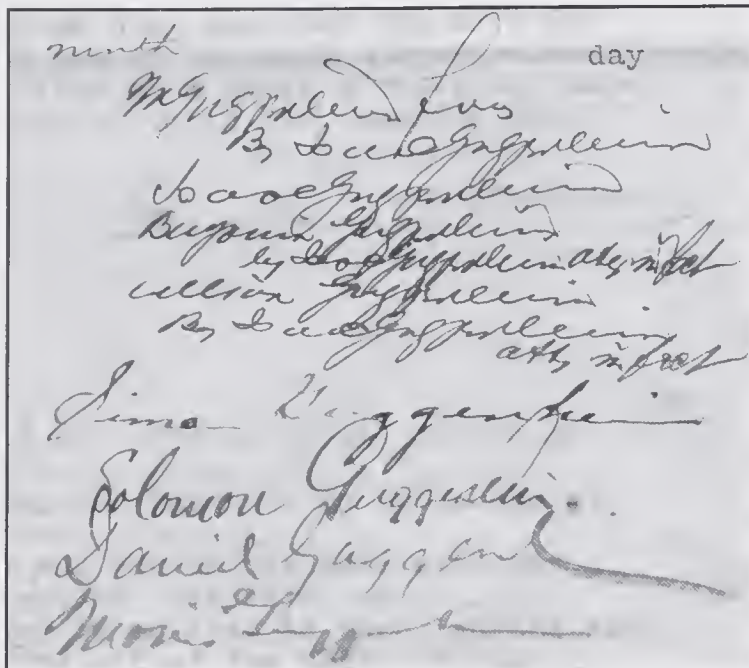 ninth day
M Guggenheim Sons
By Isaac Guggenheim
Isaac Guggenheim
Benjamin Guggenheim
by Isaac Guggenheim atty in fact
William Guggenheim
By Isaac Guggenheim
atty in fact
Simon Guggenheim
Solomon Guggenheim.
Daniel Guggenheim
Morris Guggenheim